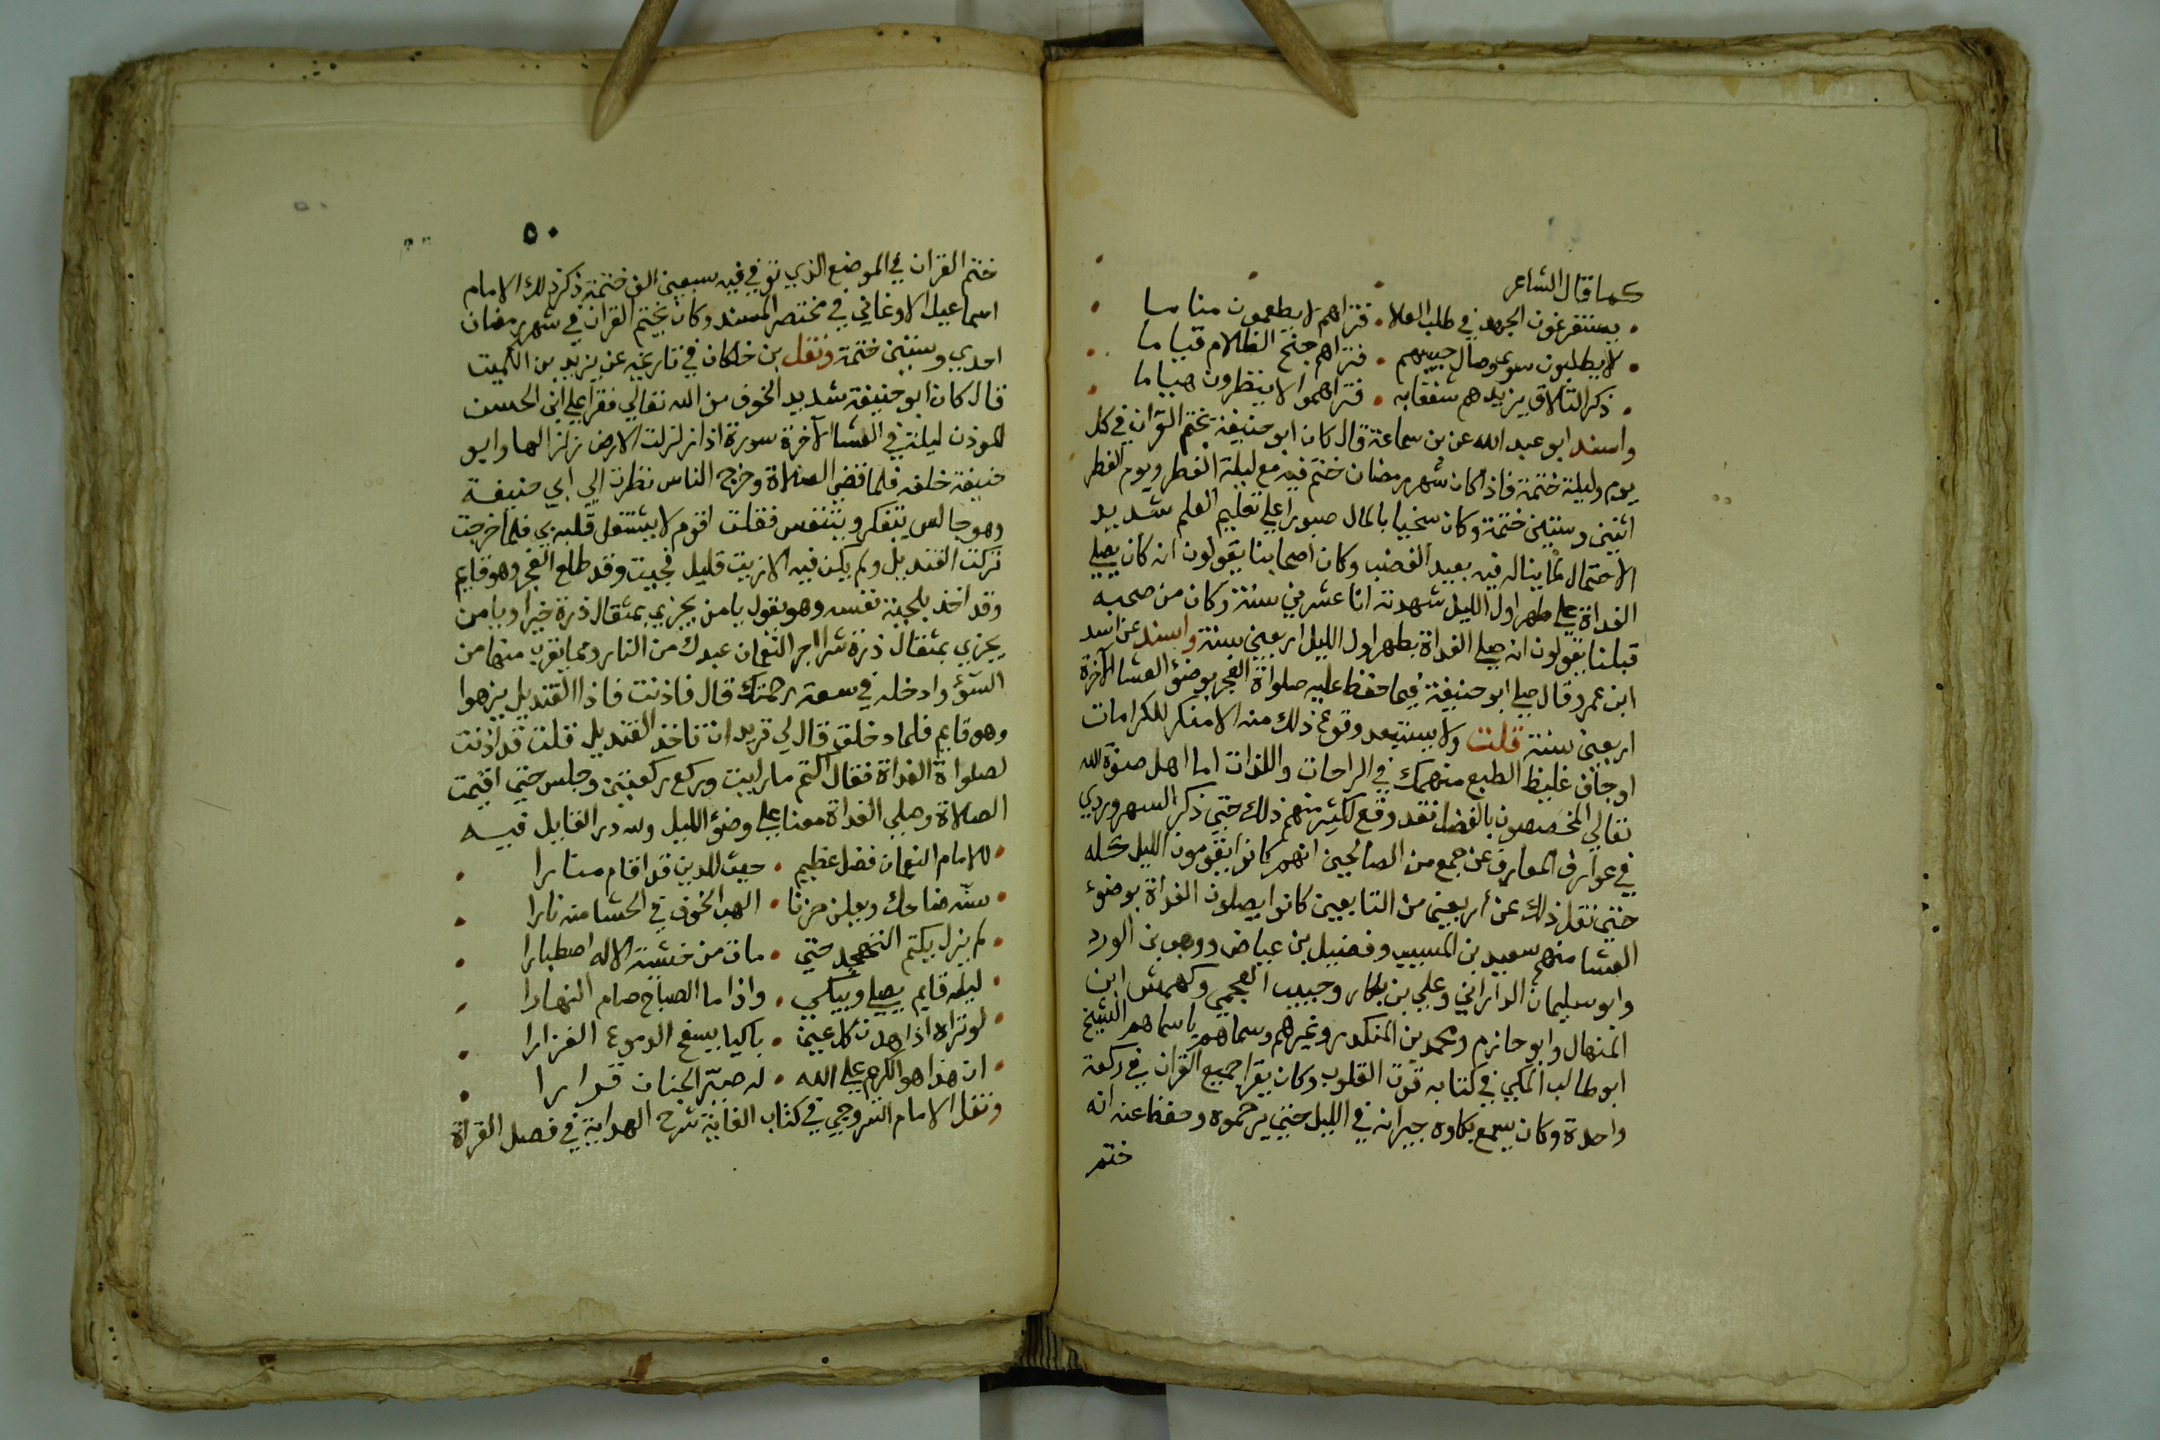 كما قال الشاعر
يستفرغون الجهد في طلب العلا فتراهم لا يطعمون مناما
لا يطلبون سوى وصال حبيبهم فتراهم جنح الظلام قياما
ذكر التلاق يزيدهم شغفا به فتراهموا لا ينظرون هياما
واسند ابو عبد الله عن بن سماعة قال كان ابو حنيفة يختم القران في كل
يوم وليلة ختمة فاذا كان شهر رمضان ختم فيه مع ليلة الفطر ويوم الفطر
اثنين وستين ختمة وكان سخيا بالمال صبورا على تعليم العلم شديد
الاحتمال لما يناله فيه بعيد الغضب وكان اصحابنا يقولون انه كان يصلي
الغداة على طهر اول الليل شهدته انا عشرين سنة وكان من صحبه
قبلنا يقولون انه صلي الغداة بطهر اول الليل اربعين سنة واسند عن اسد
ابن عمرو قال صلي ابو حنيفة فيما حفظ عليه صلواة الفجر بوضؤ العشا الآخرة
اربعين سنة قلت ولا يستبعد وقوع ذلك منه الا منكر للكرامات
او جاف غليظ الطبع منهمك في الراحات واللذات اما اهل صفوة الله
تعالي المخصصون بالفضل فقد وقع لكثير منهم ذلك حتي ذكر السهروردي
في عوارف المعارف عن جمع من الصالحين انهم كانوا يقومون الليل كله
حتي نقل ذلك عن أربعين من التابعين كانوا يصلون الغداة بوضوء
العشا منهم سعيد بن المسيب وفضيل بن عياض ووهب بن الورد
وابو سليمان الداراني وعلي بن بكار وحبيب العجمي وكهمش ابن
المنهال وابو حازم ومحمد بن المنكدر وغيرهم وسماهم باسماهم الشيخ
ابو طالب المكي في كتابه قوت القلوب وكان يقرا جميع القران في ركعة
واحدة وكان يسمع بكاوه جيرانه في الليل حتي يرحموه وحفظ عنه انه
ختم
٥٠
ختم القران في الموضع الذي توفي فيه سبعين الف ختمة ذكر ذلك الامام
اسماعيل الاوغاني في مختصر المسند وكان يختم القران في شهر رمضان
احدي وستين ختمة ونقل بن خلكان في تاريخه عن يزيد بن الكميت
قال كان ابو حنيفة شديد الخوف من الله تعالي فقرا علي ابن الحسن
الموذن ليلة في العشا الآخرة سورة اذا زلزلت الارض زلزالها وابو
حنيفة خلفه فلما قضي الصلاة وخرج الناس نظرت الي ابي حنيفة
وهو جالس يتفكر ويتنفس فقلت اقوم لا يشتغل قلبه بي فلما خرجت
تركت القنديل ولم يكن فيه الا زيت قليل فجيت وقد طلع الفجر وهو قايم
وقد اخذ بلحية نفسه وهو يقول يا من يجزي بمثقال ذرة خيرا ويا من
يجزي بمثقال ذرة شرا اجر النعمان عبدك من النار ومما يقرب منها من
السؤ وادخله في سعة رحمتك قال فاذنت فاذا القنديل يزهوا
وهو قايم فلما دخلت قال لي تريد ان تاخذ القنديل قلت قد اذنت
لصلواة الغداة فقال اكتم ما رايت وركع ركعتين وجلس حتي اقيمت
الصلاة وصلي الغداة معنا علي وضؤ الليل ولله در القايل فيه
للامام النعمان فضل عظيم حيث للدين قد اقام منارا
سنه ضاحك ويعلن حزنا الهب الخوف في الحشا منه نارا
لم يزل يكتم التهجد حتي مات من خشية الاله اصطبارا
ليله قايم يصلي ويبكي واذا ما الصباح صام النهارا
لو تراه اذا هدت كل عين باكيا يسفح الدموع الغزارا
ان هذا هو الكرم علي الله له صير الجنان قرارا
ونقل الامام السروجي في كتاب الغاية شرح الهداية في فصل القراة